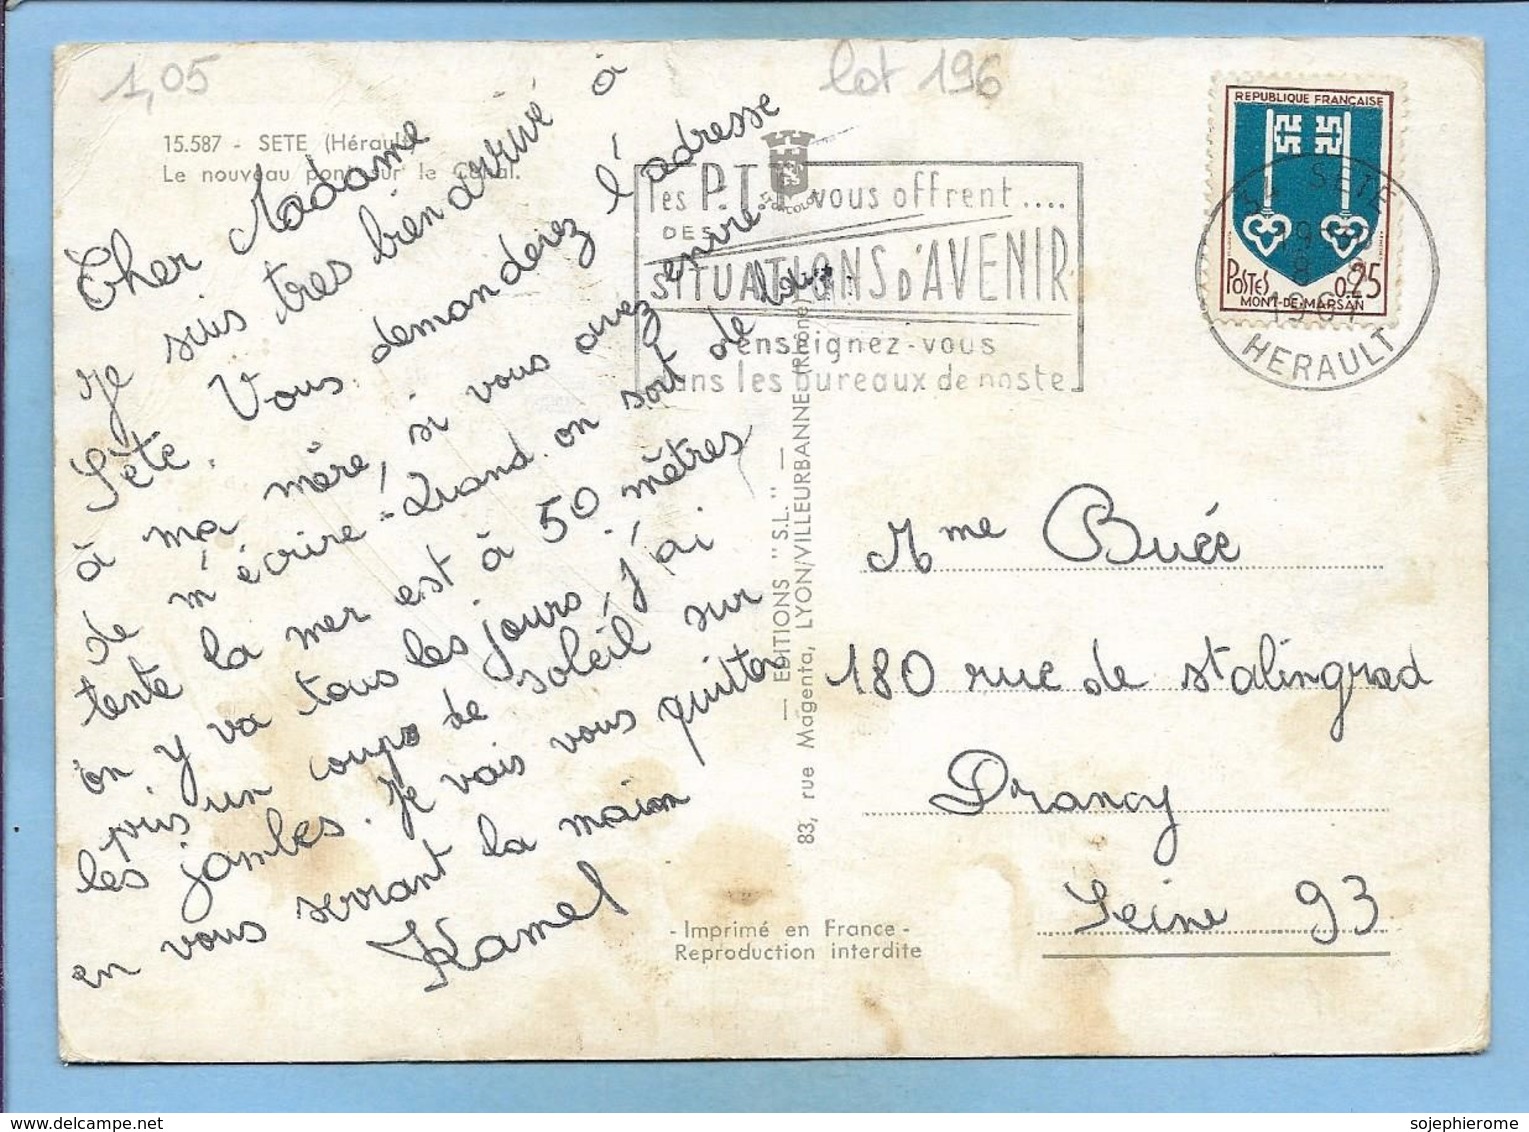 1,05
lot 196
15.587 - SETE (Hérault)
Le nouveau pont sur le Canal.
Cher Madame
je suis tres bien arrivé à
Sète. Vous demanderez l'adresse
à ma mère, si vous avez envie
de m'écrire. Quand on sort de la
tente la mer est à 50 mètres
on y va tous les jours, j'ai
pris un coups de soleil sur
les jambes. Je vais vous quitter
en vous serrant la main
Kamel
les P.T.T vous offrent....
DES
SITUATIONS D'AVENIR
renseignez-vous
dans les bureaux de poste
REPUBLIQUE FRANÇAISE
POSTES 0,25
MONT-DE-MARSAN
34 SETE
19
8 - 8
1967
HERAULT
— EDITIONS "S.L." —
83, rue Magenta, LYON/VILLEURBANNE (Rhône)
Mme Buée
180 rue de Stalingrad
Drancy
Seine 93
- Imprimé en France -
Reproduction interdite
sojephierome